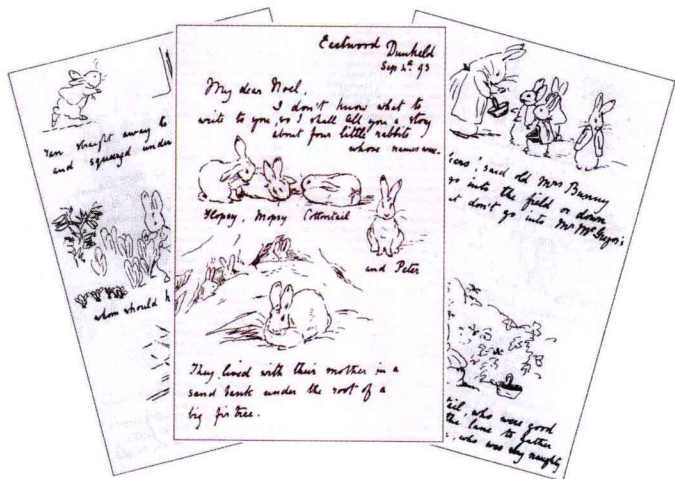 Eastwood Dunkeld
Sep 4th 93
My dear Noel,
I don't know what to
write to you, so I shall tell you a story
about four little rabbits
whose names were—
Flopsy, Mopsy Cottontail
and Peter
They lived with their mother in a
sand bank under the root of a
big fir tree.
ran straight away
and squeezed under
whom should
said old Mrs Bunny
go into the field or down
don't go into Mr McGregor's
tail, who were good
the lane to gather
, who was very naughty